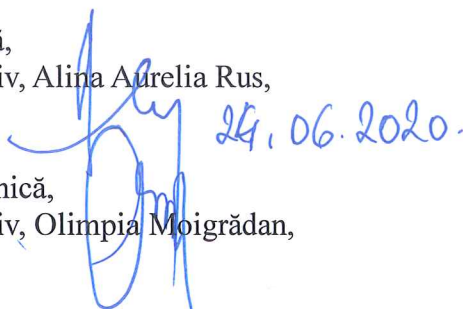 ă,
iv, Alina Aurelia Rus,
24.06.2020.
nică,
iv, Olimpia Moigrădan,